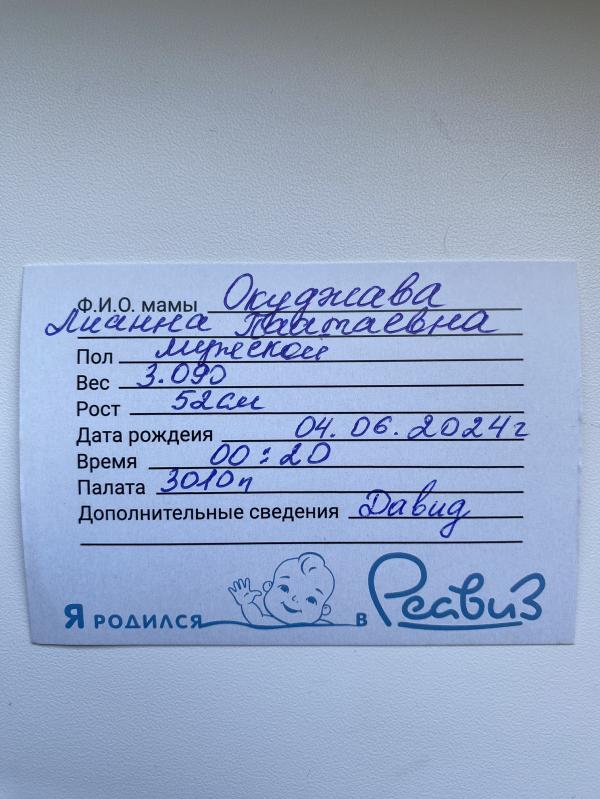 Ф.И.О. мамы Окуджава
Лианна Паатаевна
Пол мужской
Вес 3.090
Рост 52см
Дата рождеия 04.06.2024г
Время 00:20
Палата 3010п
Дополнительные сведения Давид
Я РОДИЛСЯ В РеавиЗ